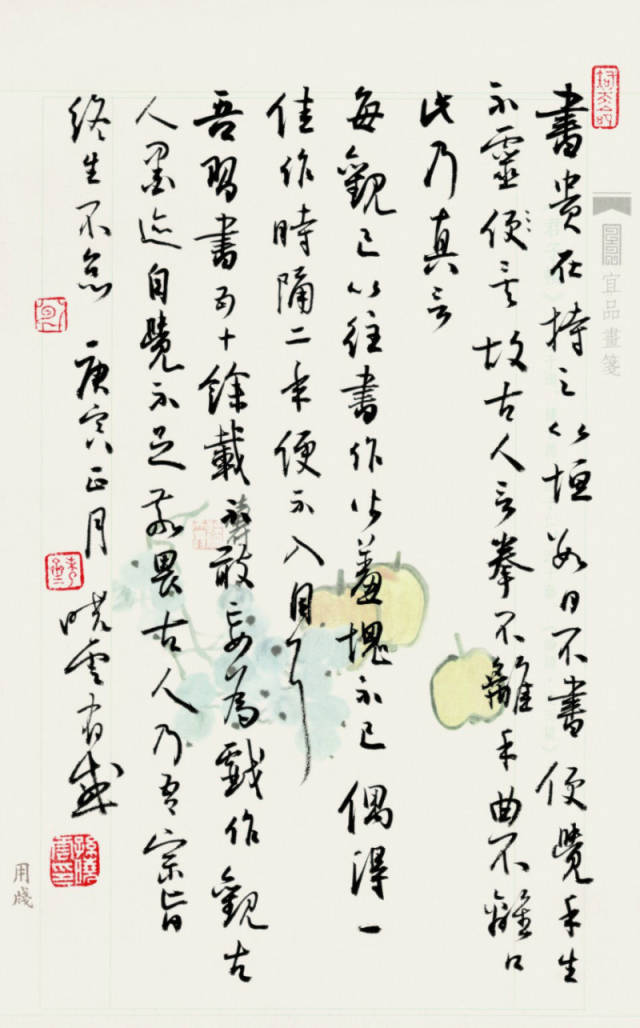 書貴在持之以恒數日不書便覺手生
不靈便之言故古人言拳不離手曲不離口
此乃真言
每觀已以往書作皆羞愧不已偶得一
佳作時隔二年便不入目了
吾習書五十餘載不敢妄為戲作觀古
人墨迹自覺不足敬畏古人乃吾宗旨
終生不怠
庚寅正月
曉雲有感
宜品畫箋
用箋